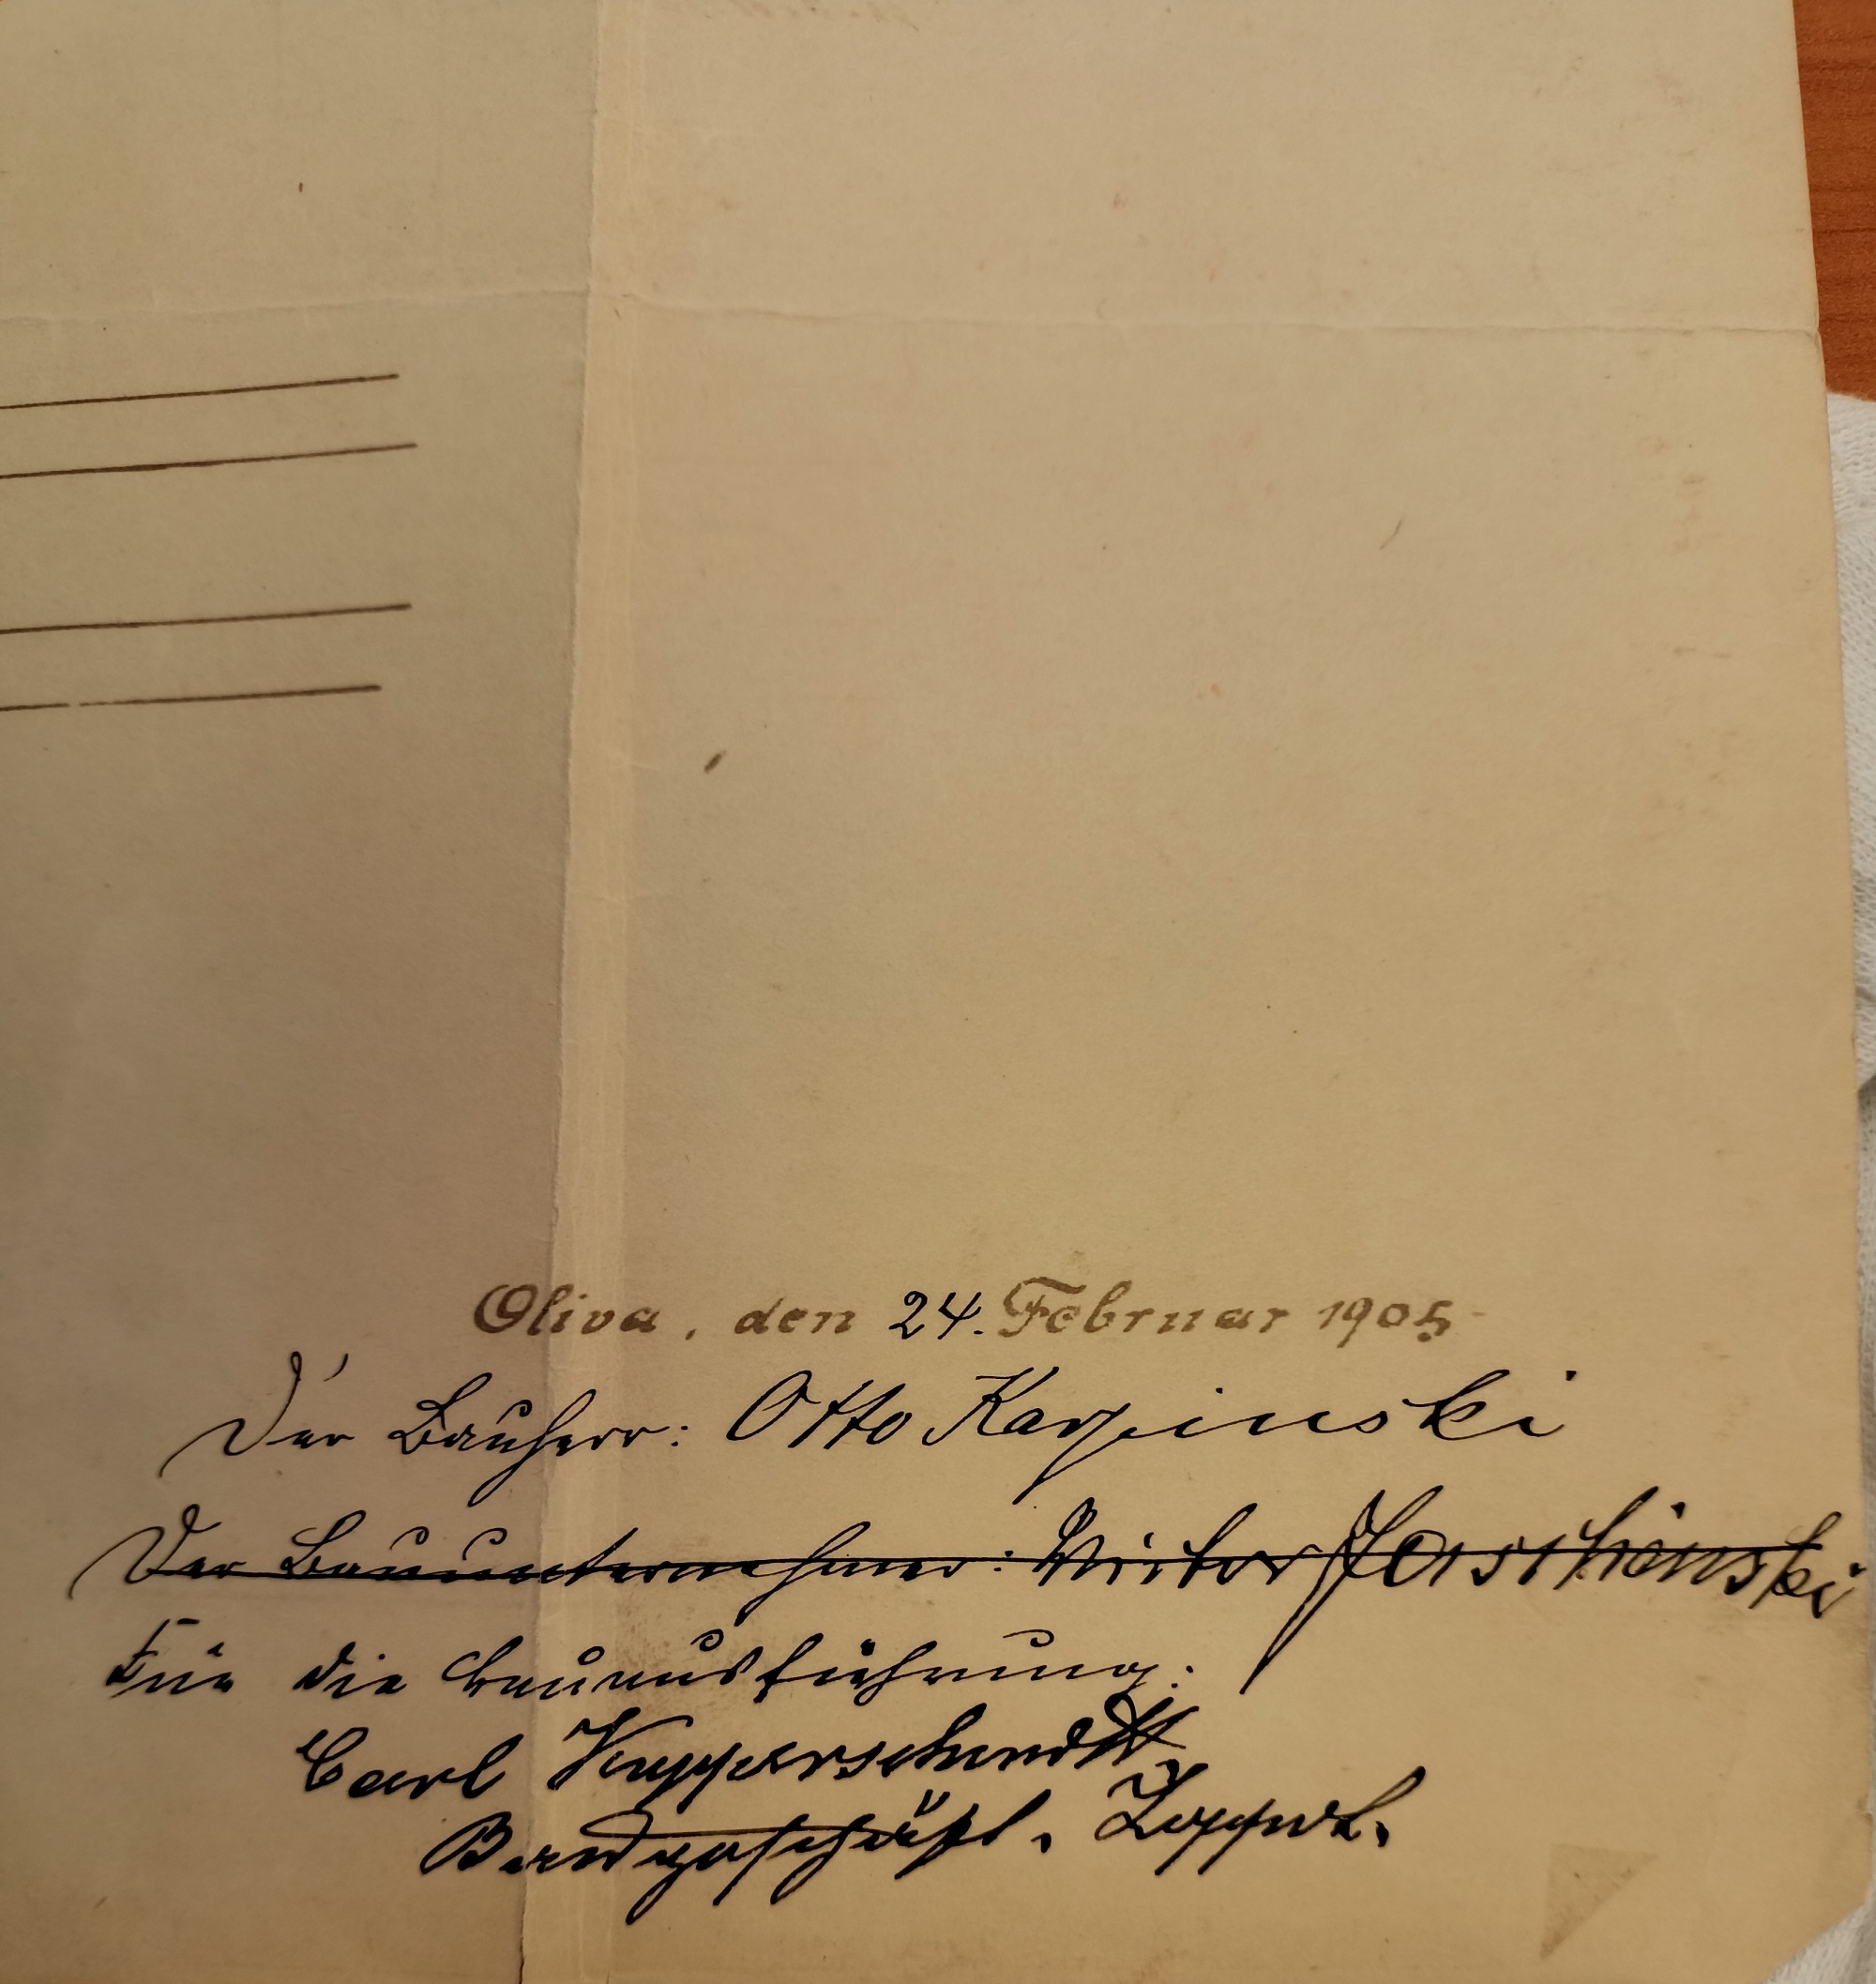 Oliva, den 24. Februar 1905
Der Bauherr: Otto Karpinski
Der Bauunternehmer: Victor
Für die Bauausführung:
Carl Kupperschmidt
Baugeschäft. Zoppot.